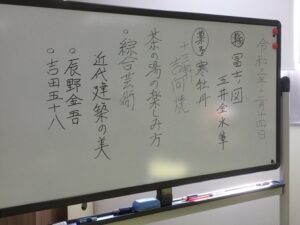 令和三年十二月十四日
軸 富士ノ図
三井金水筆
菓子 寒牡丹
吉向焼
茶の湯の楽しみ方
・綜合芸術
近代建築の美
・辰野金吾
・吉田五十八